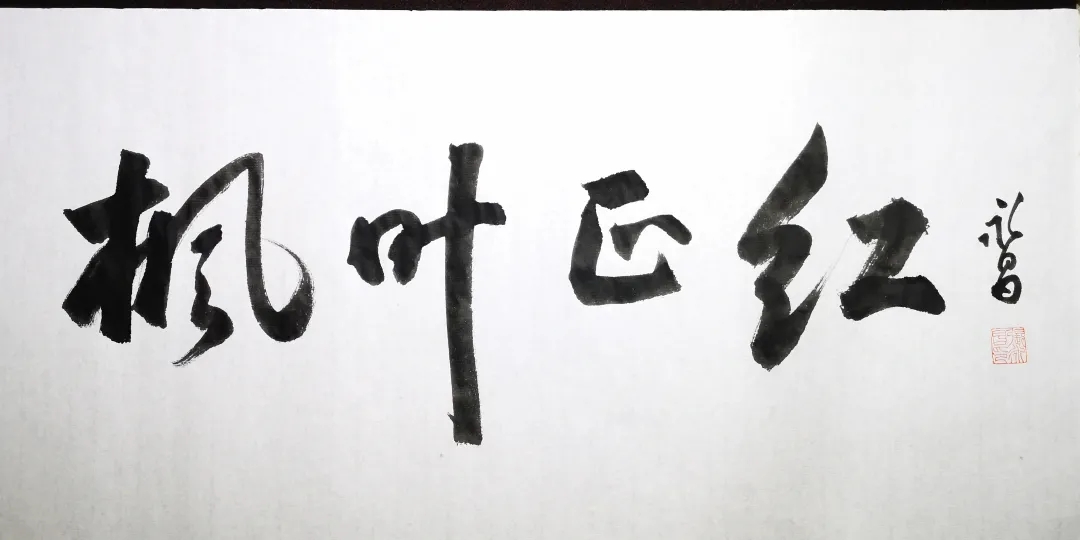 枫叶正红
永昌